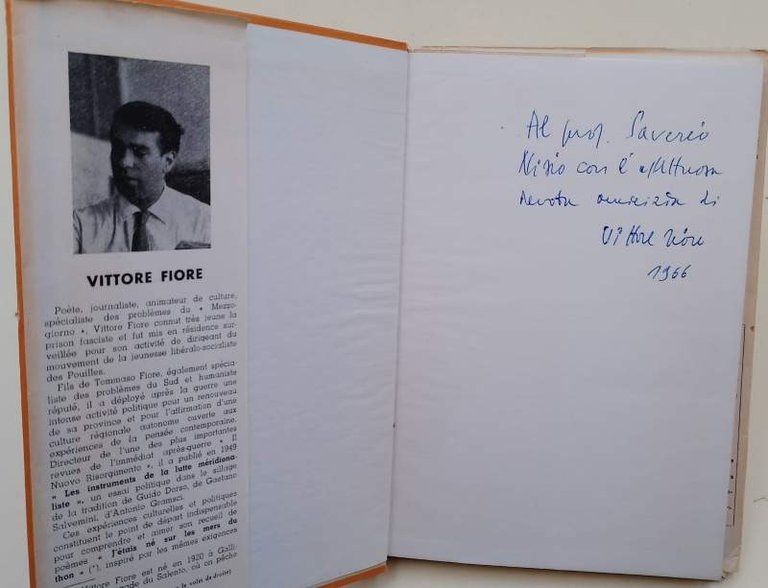 VITTORE FIORE
Poète, journaliste, animateur de culture,
spécialiste des problèmes du « Mezzo-
giorno », Vittore Fiore connut très jeune la
prison fasciste et fut mis en résidence sur-
veillée pour son activité de dirigeant du
mouvement de la jeunesse libéralo-socialiste
des Pouilles.
Fils de Tommaso Fiore, également spécia-
liste des problèmes du Sud et humaniste
réputé, il a déployé après la guerre une
intense activité politique pour un renouveau
de sa province et pour l'affirmation d'une
culture régionale autonome ouverte aux
expériences de la pensée contemporaine.
Directeur de l'une des plus importantes
revues de l'immédiat après-guerre « Il
Nuovo Risorgimento », il a publié en 1949
« Les instruments de la lutte méridiona-
liste », un essai politique dans le sillage
de la tradition de Guido Dorso, de Gaetano
Salvemini, d'Antonio Gramsci.
Ces expériences culturelles et politiques
constituent le point de départ indispensable
pour comprendre et aimer son recueil de
poèmes « J'étais né sur les mers du
thon » (*), inspiré par les mêmes exigences
Vittore Fiore est né en 1920 à Galli-
du Salento, où on pêche
Al prof. Saverio
con l'affettuosa
devota amicizia di
Vittore Fiore
1966